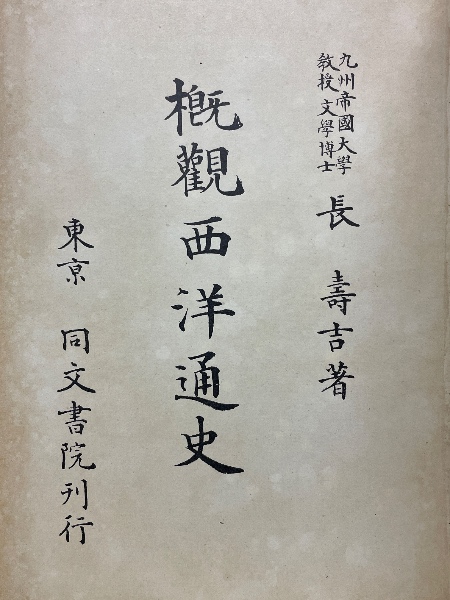 九州帝國大學
教授 文學博士
長 壽吉著
概觀西洋通史
東京 同文書院刊行